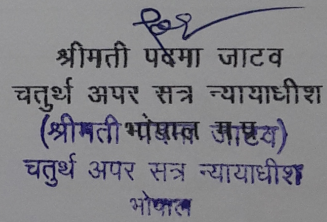 श्रीमती पदमा जाटव
चतुर्थ अपर सत्र न्यायाधीश
भोपाल म.प्र.
(श्रीमती पदमा जाटव)
चतुर्थ अपर सत्र न्यायाधीश
भोपाल